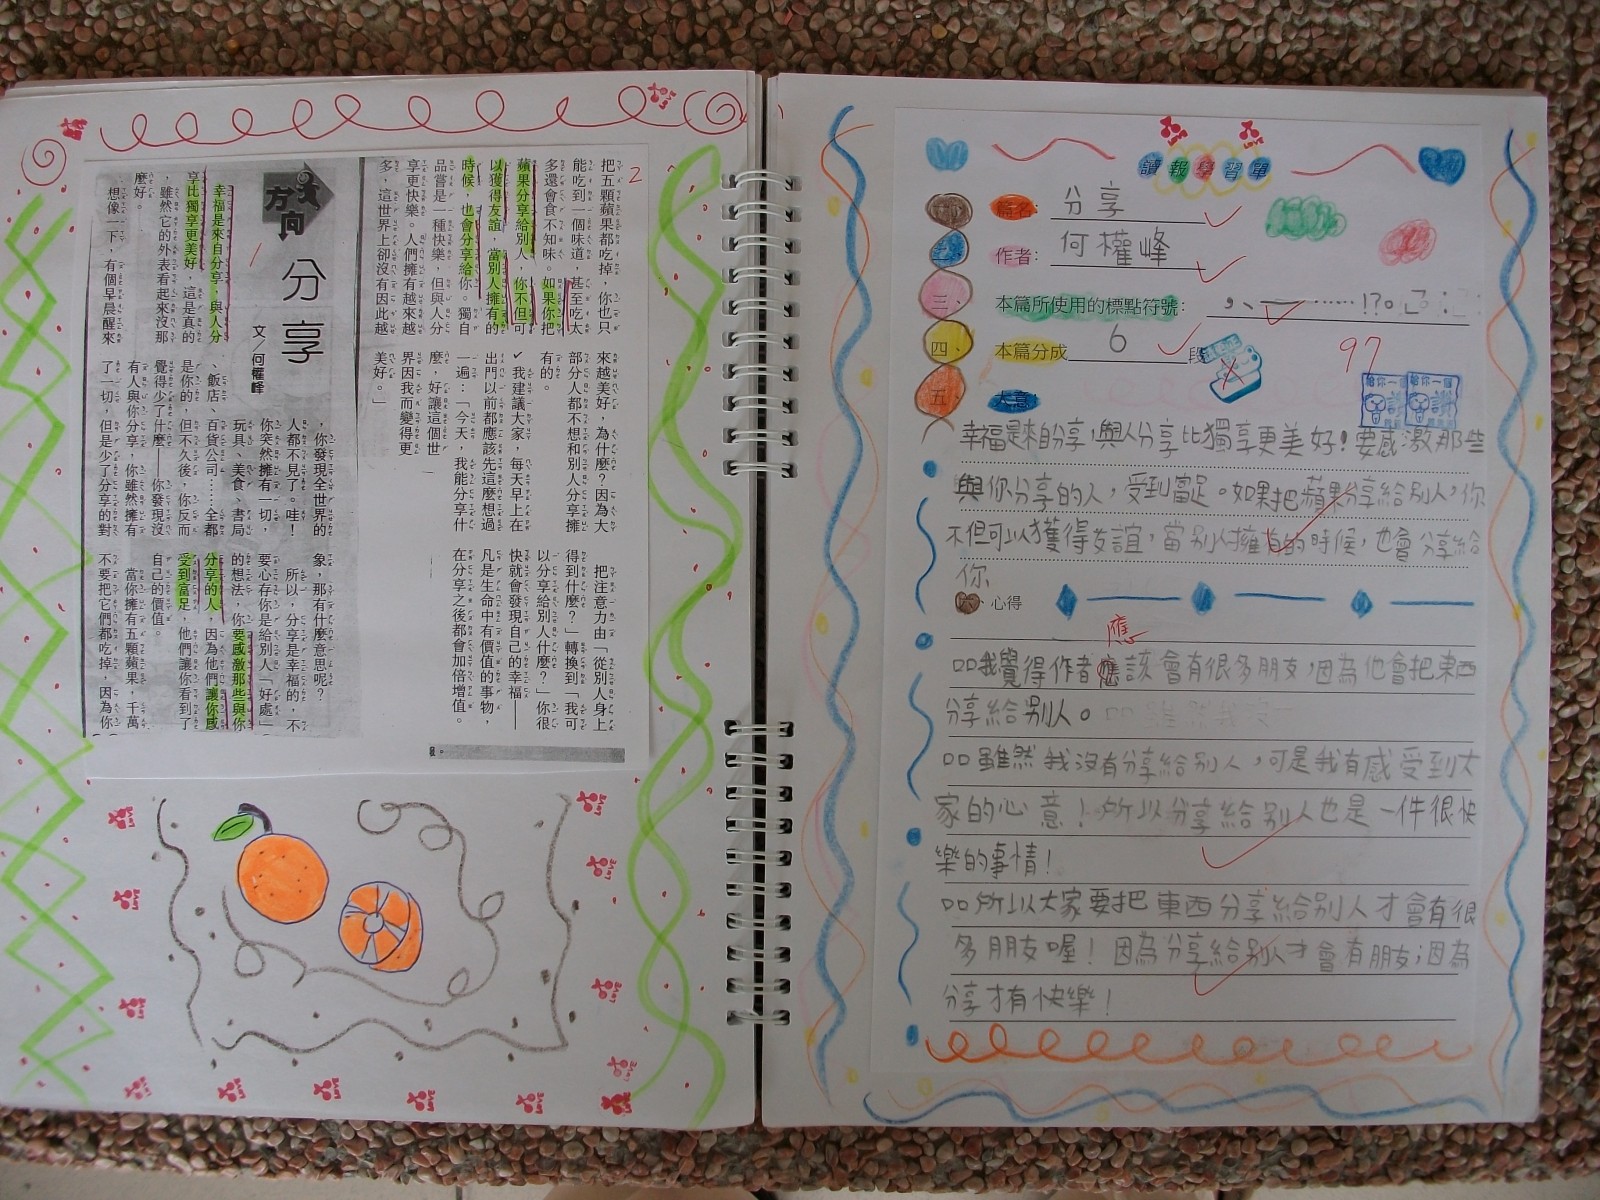 方向
分享
文/何權峰
1
幸福是來自分享,與人分
享比獨享更美好,這是真的
,雖然它的外表看起來沒那
麼好。
想像一下,有個早晨醒來
,你發現全世界的
人都不見了。哇!
你突然擁有一切,
玩具、美食、書局
、飯店、百貨公司……全都
是你的,但不久後,你反而
覺得少了什麼——你發現沒
有人與你分享,你雖然擁有
了一切,但是少了分享的對
象,那有什麼意思呢?
所以,分享是幸福的,不
要心存你是給別人「好處」
的想法,你要感激那些與你
分享的人,因為他們讓你感
受到富足,他們讓你看到了
自己的價值。
當你擁有五顆蘋果,千萬
不要把它們都吃掉,因為你
2
把五顆蘋果都吃掉,你也只
能吃到一個味道,甚至吃太
多還會食不知味。如果你把
蘋果分享給別人,你不但可
以獲得友誼,當別人擁有的
時候,也會分享給你。獨自
品嘗是一種快樂,但與人分
享更快樂。人們擁有越來越
多,這世界上卻沒有因此越
來越美好,為什麼?因為大
部分人都不想和別人分享擁
有的。
我建議大家,每天早上在
出門以前都應該先這麼想過
一遍:「今天,我能分享什
麼,好讓這個世
界因我而變得更
美好。」
把注意力由「從別人身上
得到什麼?」轉換到「我可
以分享給別人什麼?」你很
快就會發現自己的幸福——
凡是生命中有價值的事物,
在分享之後都會加倍增值。
讀報學習單
一、篇名: 分享
二、作者: 何權峰
三、本篇所使用的標點符號: ,、—……!?。
四、本篇分成 6 段
97
五、大意:
幸福是來自分享,與人分享比獨享更美好!要感激那些
與你分享的人,受到富足。如果把蘋果分享給別人,你
不但可以獲得友誼,當別人擁有的時候,也會分享給
你
六、心得
應
□□我覺得作者應該會有很多朋友,因為他會把東西
分享給別人。
□□雖然我沒有分享給別人,可是我有感受到大
家的心意!所以分享給別人也是一件很快
樂的事情!
□□所以大家要把東西分享給別人才會有很
多朋友喔!因為分享給別人才會有朋友;因為
分享才有快樂!
LOVE